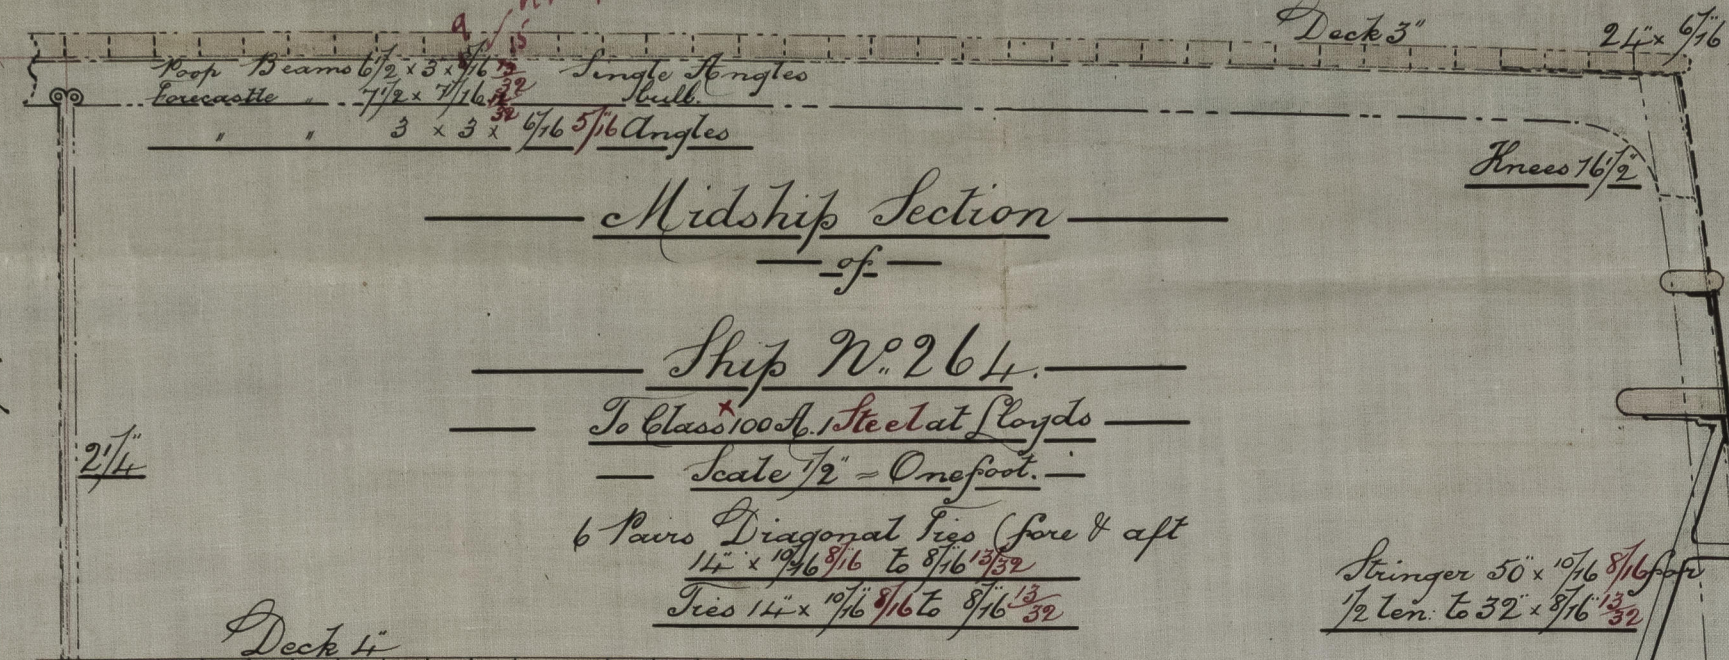 Deck 3"
24" x 6/16"
Poop Beams 6 1/2 x 3 x 8/16 13/32 Single Angles
Forecastle " 7 1/2 x 7/16 Bulb.
" " 3 x 3 x 6/16 5/16 Angles
Knees 16 1/2"
Midship Section
of
Ship No. 264.
To Class x 100 A.1 Steel at Lloyds
Scale 1/2" = One foot.
2 1/4"
6 Pairs Diagonal Ties (fore & aft
14" x 10/16" 8/16 to 8/16" 13/32
Ties 14" x 10/16" 8/16 to 8/16" 13/32
Stringer 50" x 10/16" 8/16 for
1/2 len: to 32" x 8/16" 13/32
Deck 4"